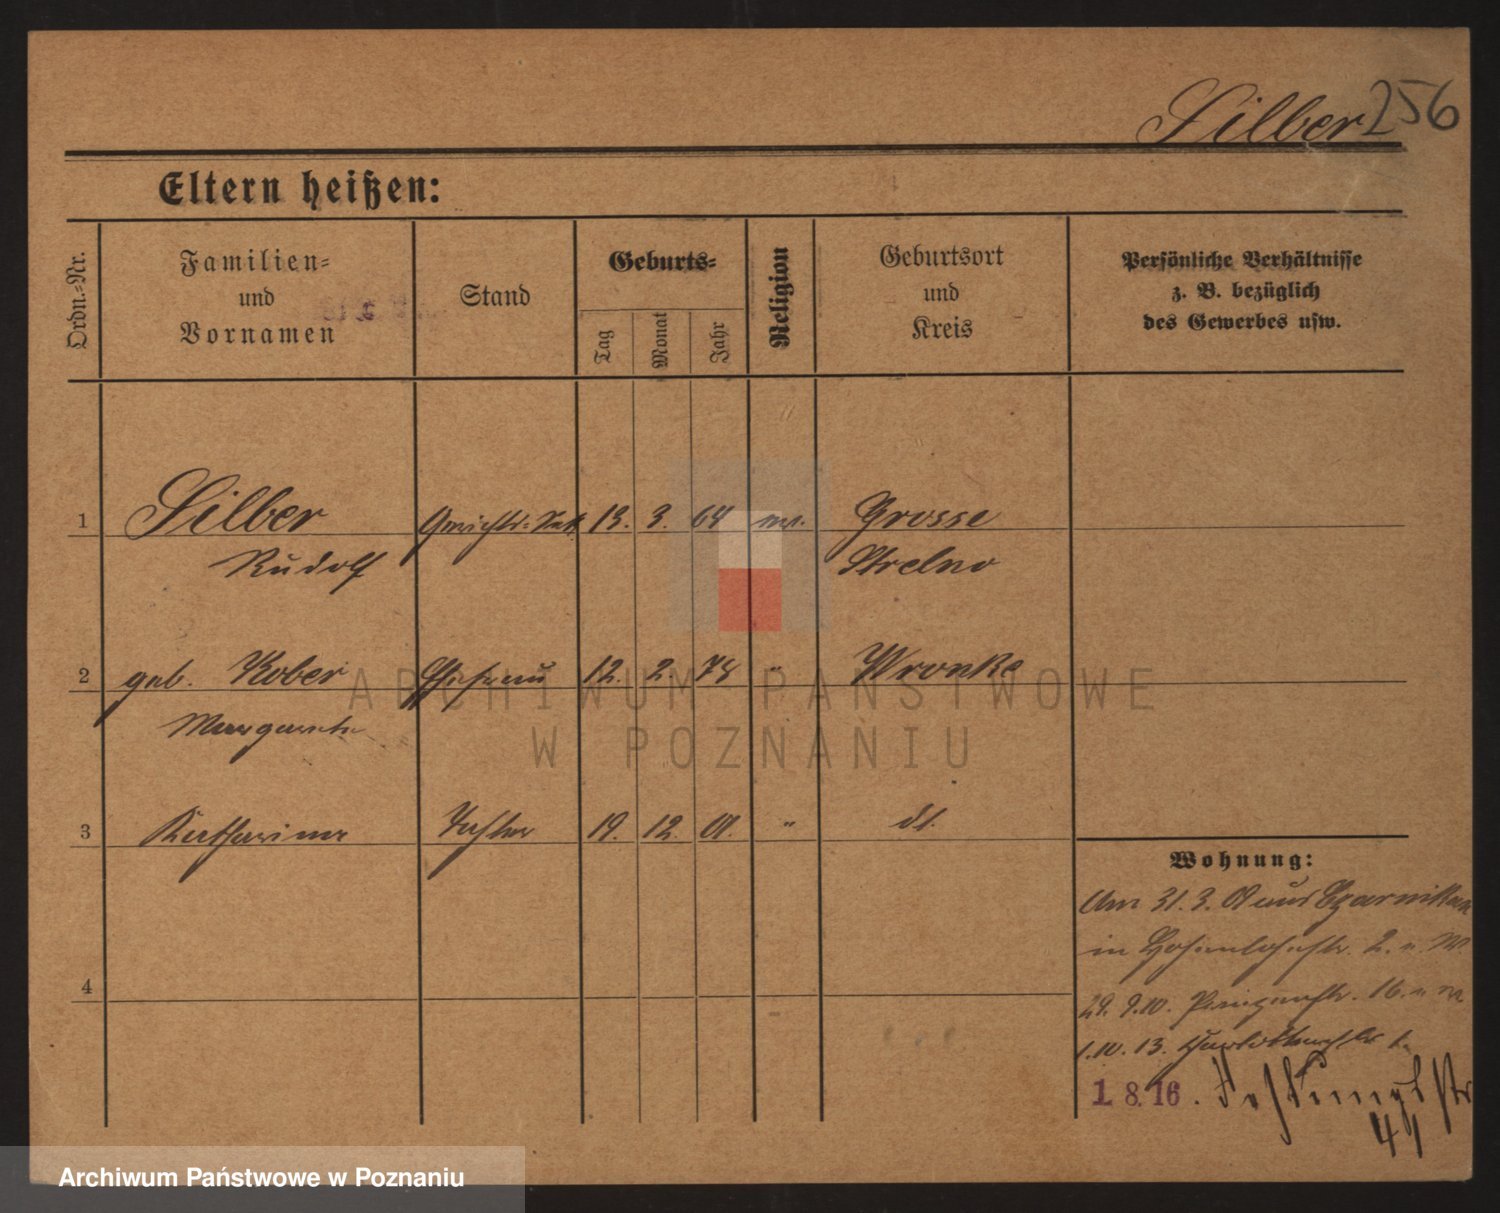 Silber 256
Eltern heißen:
Ordn.=Nr.
Familien=
und
Vornamen
Stand
Geburts=
Tag
Monat
Jahr
Religion
Geburtsort
und
Kreis
Persönliche Verhältnisse
z. B. bezüglich
des Gewerbes usw.
1 Silber 13. 3. 64 Grosse
Rudolf Strelno
2 geb. Kober Ehefrau 12. 2. Wronke
Margarete
3 Katharina Tochter 19. 12. 01. " dt.
Wohnung:
Am 31. 3. aus Czarnikau
in Hohenlohestr. 2. n. M.
29. 9. 10. 16. n.
1. 10. 13.
4
1 8. 16. Festungsstr
41
ARCHIWUM PAŃSTWOWE
W POZNANIU
Archiwum Państwowe w Poznaniu